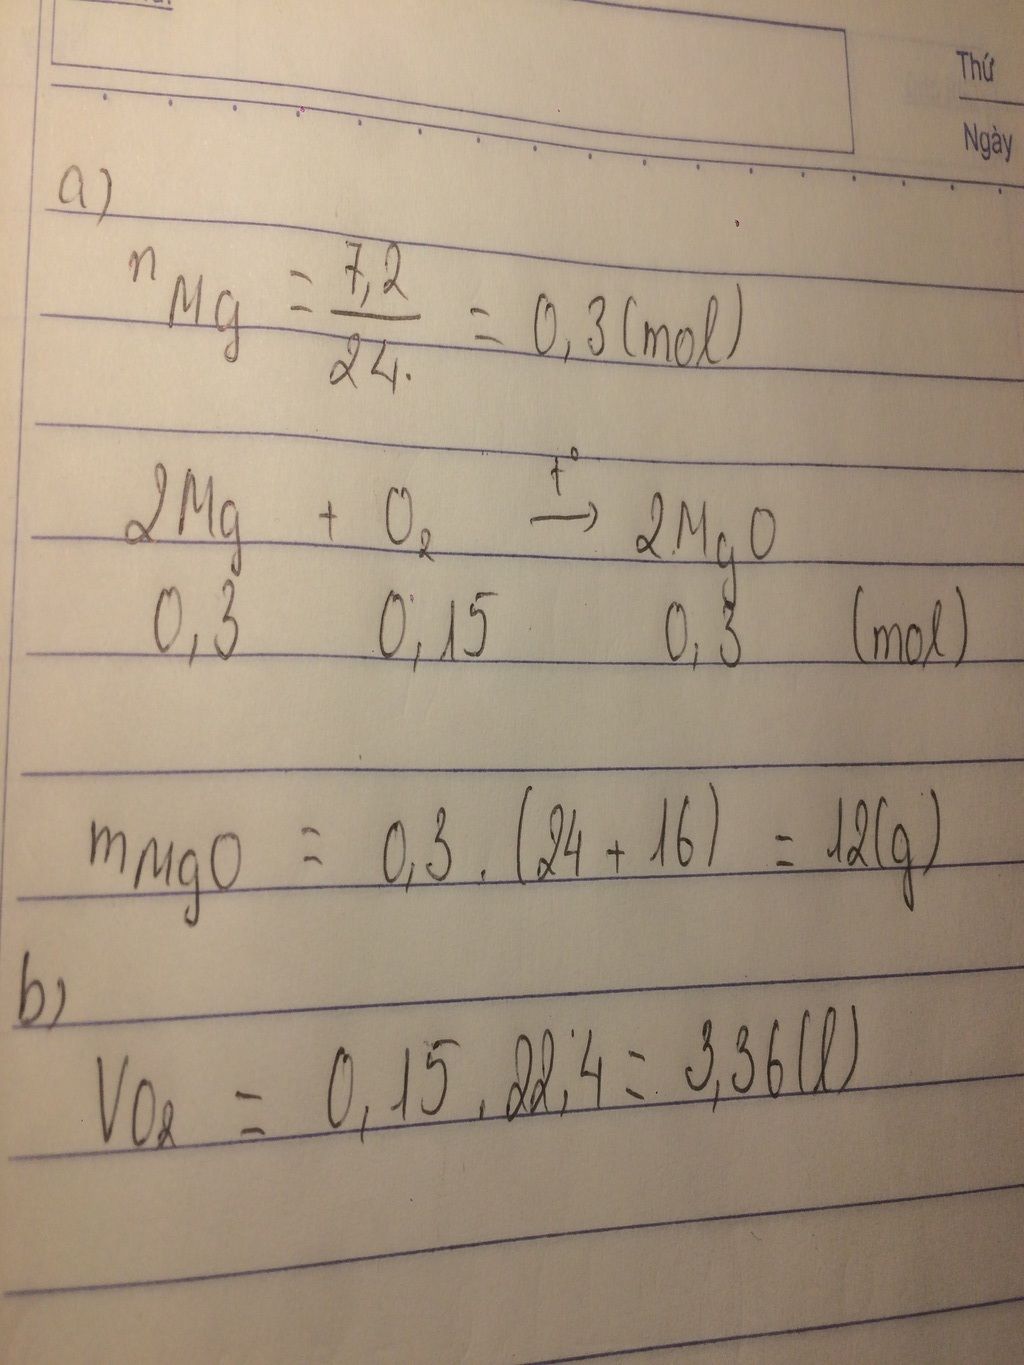 Thứ
Ngày
a)
nMg = 7,2/24. = 0,3 (mol)
2Mg + O₂ t° → 2MgO
0,3 0,15 0,3 (mol)
mMgO = 0,3 . (24 + 16) = 12(g)
b)
VO₂ = 0,15 . 22,4 = 3,36 (l)